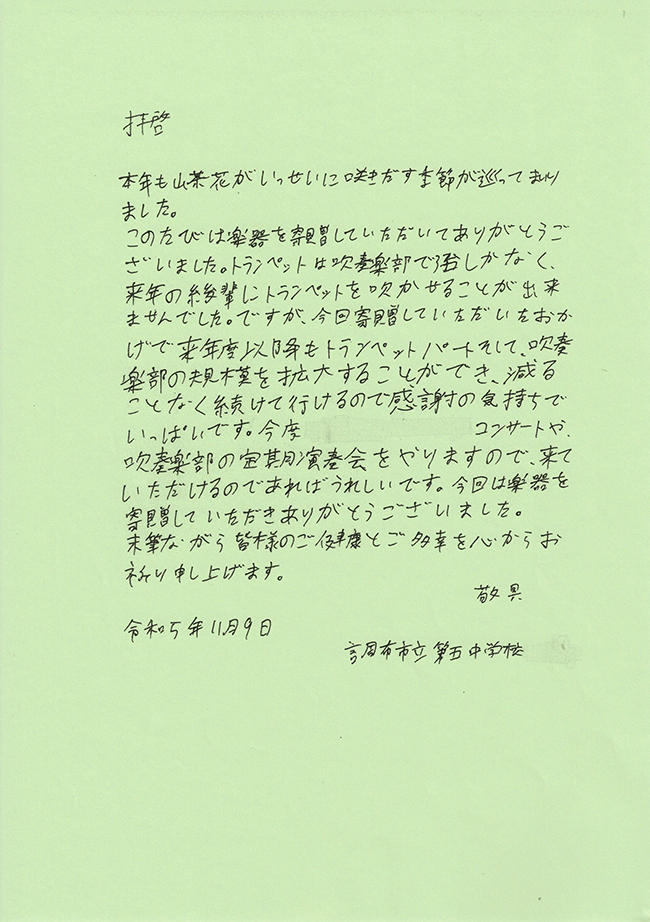 拝啓
本年も山茶花がいっせいに咲きだす季節が巡ってまいり
ました。
このたびは楽器を寄贈していただいてありがとうご
ざいました。トランペットは吹奏楽部で3台しかなく、
来年の後輩にトランペットを吹かせることが出来
ませんでした。ですが、今回寄贈していただいたおか
げで来年度以降もトランペットパートそして、吹奏
楽部の規模を拡大することができ、減る
ことなく続けて行けるので感謝の気持ちで
いっぱいです。今度 コンサートや、
吹奏楽部の定期演奏会をやりますので、来て
いただけるのであればうれしいです。今回は楽器を
寄贈していただきありがとうございました。
末筆ながら皆様のご健康とご多幸を心からお
祈り申し上げます。
敬具
令和5年11月9日
調布市立第五中学校